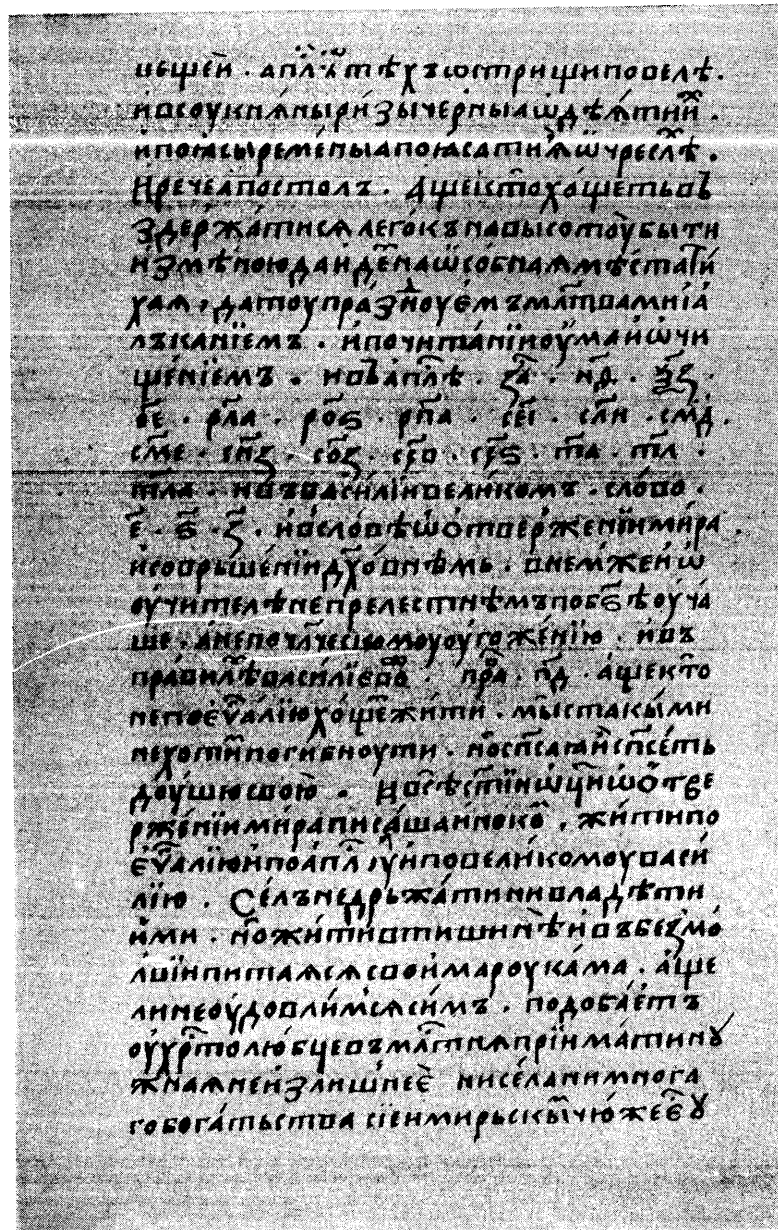 цєщеи҆ · а҆пл҇к тѣхъ ѡстрищи повелѣ ·
и҆ всоукнѧны ри́зы че́рны а ѡ҆дѣѧ́ти и҆ ·
и҆ поꙗсы реме́ны а поꙗсати ѧ҆ ѿ чреслѣ ·
И҆ рече а҆постолъ · А҆ще и҆ сто хо́щеть въ
здержа́тисѧ лего́къ на высотоу бы́ти
и҆змѣ́ною да и҆де́ на ѡ҆со́бнаѧ мѣста ти́
хаѧ , да тоу пра́зноуемъ мл҃твами і а҆
лъканїемъ · и҆ почита́нїи и҆ оу҆ма и҆ ѡ҆чи
ще́нїемъ · и҆ въ а҆пл҇ѣ · ѯ҃а · н҃д ·
о҃е · рл҃а · ро҃ѕ · рп҃а · сє҃і · сл҃и · см҃д ·
см҃е · сп҃ѯ · со҃ѯ · · · т҃а · тл҃ ·
тл҃а · и҆ въ васи́лїи великомъ · сло́во ·
є҃ · ѕ҃ · ѯ҃ · и҆ въ словѣ ѡ҆ ѡтверже́нїи мира
и҆ совръше́нїи дх҃о́внѣмь · внемли́ же и҆ ѡ҆
оу҆чи́телѣ непре́лестнѣмъ по бз҃ѣ оу҆ча
ще · а҆ не по чл҃ческомоу оу҆гоже́нїю · и҆ въ
пра́вилѣ васи́лїєво · пр҃а · п҃д · а҆ще кто̀
не по є҆ѵⷢ҇алїю хо́ще жити · мы̀ с такы́ми
не хоти́м поги́бноути · но̀ сп҃са́ѧ и҆ сп҃се́ть
доу́шю свою̀ · И҆ всѣ ст҃їи ѡ҆ц҃и ѡ҆ ѿве
рже́нїи мира писа́ша и҆ноко̀ , жи́ти по
є҆ѵⷢ҇алїю и҆ по а҆пл҇оу и҆ по вели́комоу васи́
лїю · Се́лъ не дръжа́ти ни владѣти
и҆ми · но̀ жи́ти в тишинѣ и҆ въ безмо́
лвїи питаѧсѧ свои́ма роука́ма · а҆ще
ли не оу҆довли́мсѧ си́мъ · подоба́етъ
оу҆ хр҇толю́бцевъ мл҇тнѧ прїима́ти ну́
жнаѧ не и҆злишнее҆ ни се́ла ни многа
го бога́тьства сїе и҆ мирьскы̀м чю́же е҆ ꙋ